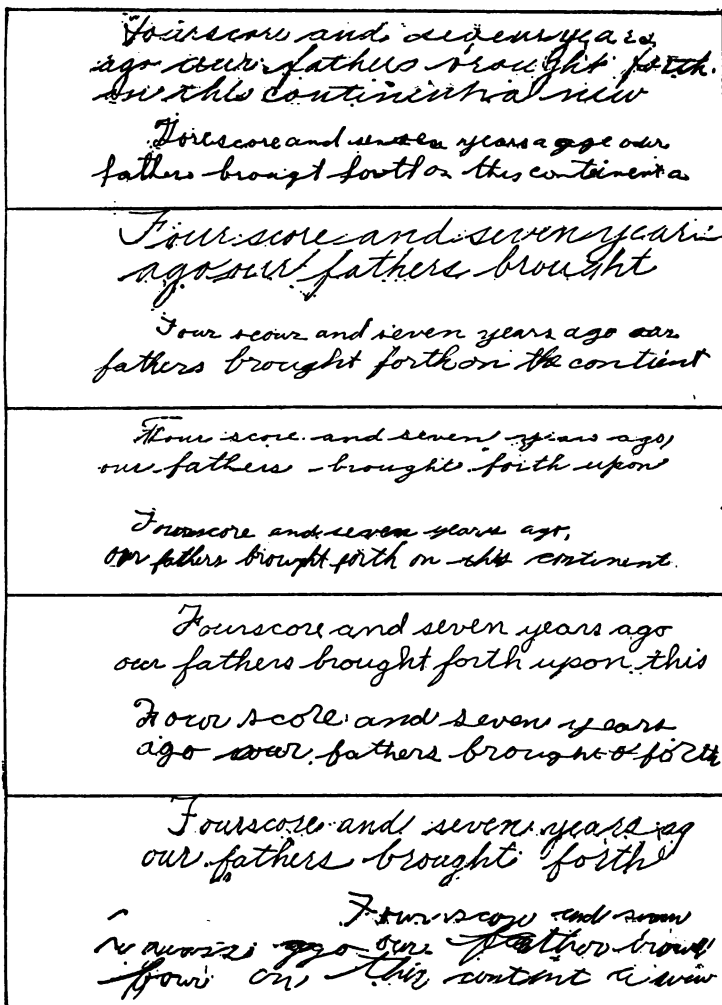 Fourscore and seven years
ago our fathers brought forth
on this continent a new
Forescore and seven years a age our
fathers brougt forth on this conteinent a
Four score and seven years
ago our fathers brought
Four scour and seven years ago our
fathers brought forth on the contient
Four score and seven years ago,
our fathers brought forth upon
Fourscore and seven years ago,
our fathers brought forth on this continent.
Fourscore and seven years ago
our fathers brought forth upon this
Four score and seven years
ago our fathers brought forth
Fourscore and seven years ag
our fathers brought forth
Four score and seven
ago our father
on this content a new